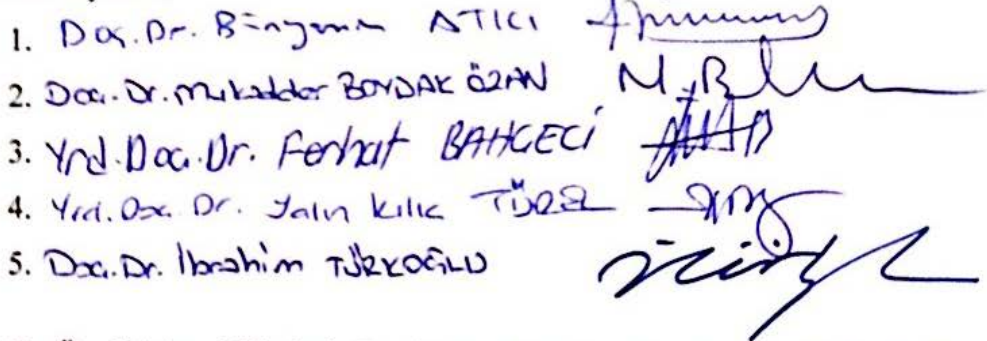 1. Doç.Dr. Bünyamin ATICI
2. Doç.Dr. Mukadder BOYDAK ÖZAN
3. Yrd.Doç.Dr. Ferhat BAHÇECİ
4. Yrd.Doç.Dr. Yalın Kılıç TÜREL
5. Doç.Dr. İbrahim TÜRKOĞLU